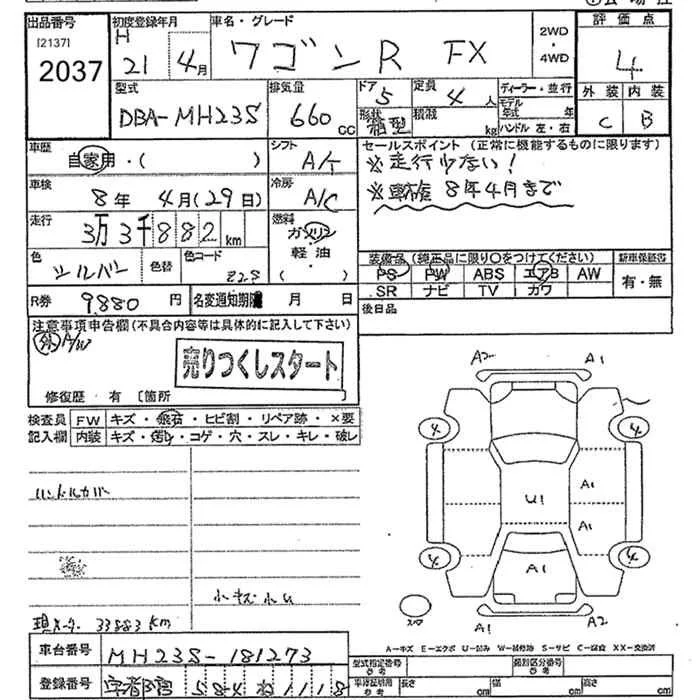 出品番号
[2137]
2037
初度登録年月
H
21 4月
車名・グレード
ワゴンR FX
2WD
・
4WD
評価点
4
型式
DBA-MH23S
排気量
660 CC
ドア
5
定員
4 人
形状
箱型
積載
kg
ディーラー・並行
モデル年式 年
ハンドル 左・右
外装 内装
C B
車歴
自家用・( )
シフト
A/T
セールスポイント (正常に機能するものに限ります)
※走行少ない!
※車検 8年4月まで
車検
8年 4月(29日)
冷房
A/C
走行
3万3千882km
燃料
ガソリン
軽油
・
色
シルバー
色替
色コード
Z2S
装備品(純正品に限り○をつけてください)
PS PW ABS エアB AW
SR ナビ TV カワ
新車保証書
有・無
R券
9.880 円
名変通知期限 月 日
後日品
注意事項申告欄(不具合内容等は具体的に記入して下さい)
A/W
売りつくしスタート
修復歴 有 [箇所 ]
検査員
記入欄
FW キズ・飛石・ヒビ割・リペア跡・×要
内装 キズ・汚れ・コゲ・穴・スレ・キレ・破レ
ハンドルカバー
小キズ小U
現メーター 33883km
A2 A1
4 4
A1
U1
A1
4 4
A1
スペア
A1 A2
A-キズ E-エクボ U-凹み W-補修跡 S-サビ C-腐食 XX-交換済
車台番号
MH23S-181273
登録番号
584 1118
型式指定番号
参考
類別区分番号
参考
長さ cm 幅 cm 高さ cm